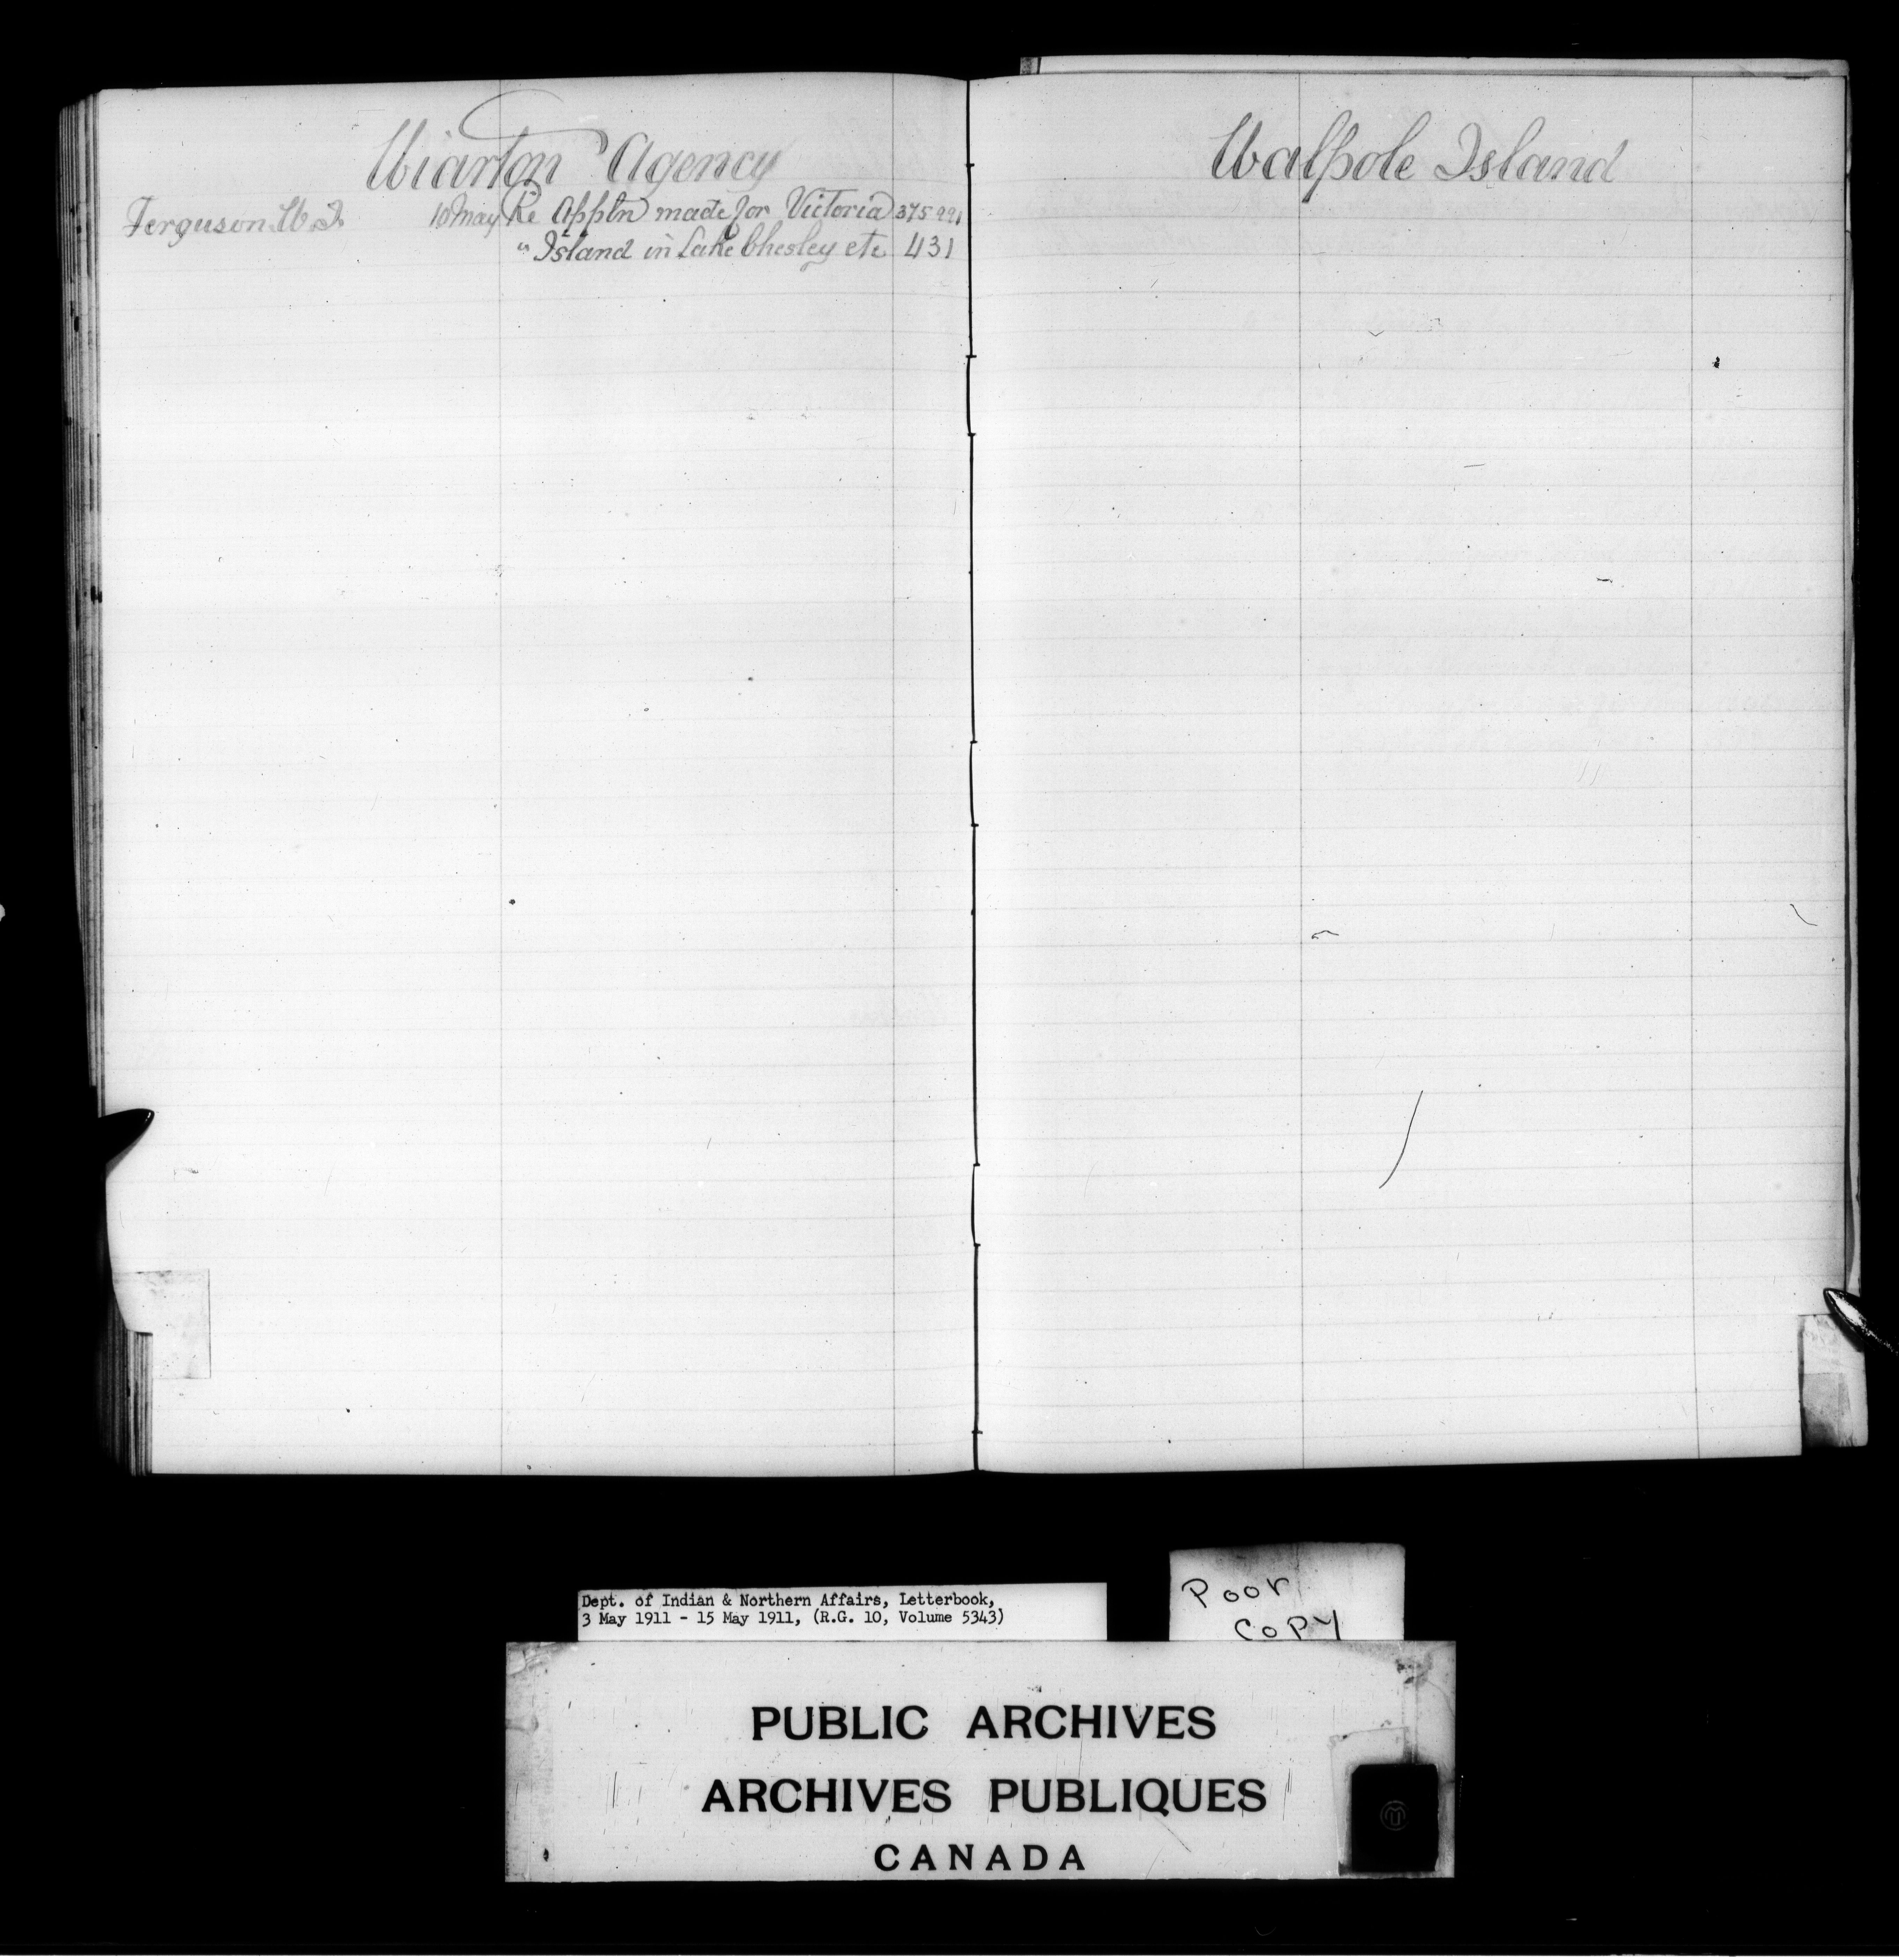 Wiarton Agency
Ferguson W.I. 10 May Re Appln made for Victoria 375 991
" Island in Lake Chesley etc 431
Walpole Island
Dept. of Indian & Northern Affairs, Letterbook,
3 May 1911 - 15 May 1911, (R.G. 10, Volume 5343)
Poor
Copy
PUBLIC ARCHIVES
ARCHIVES PUBLIQUES
CANADA